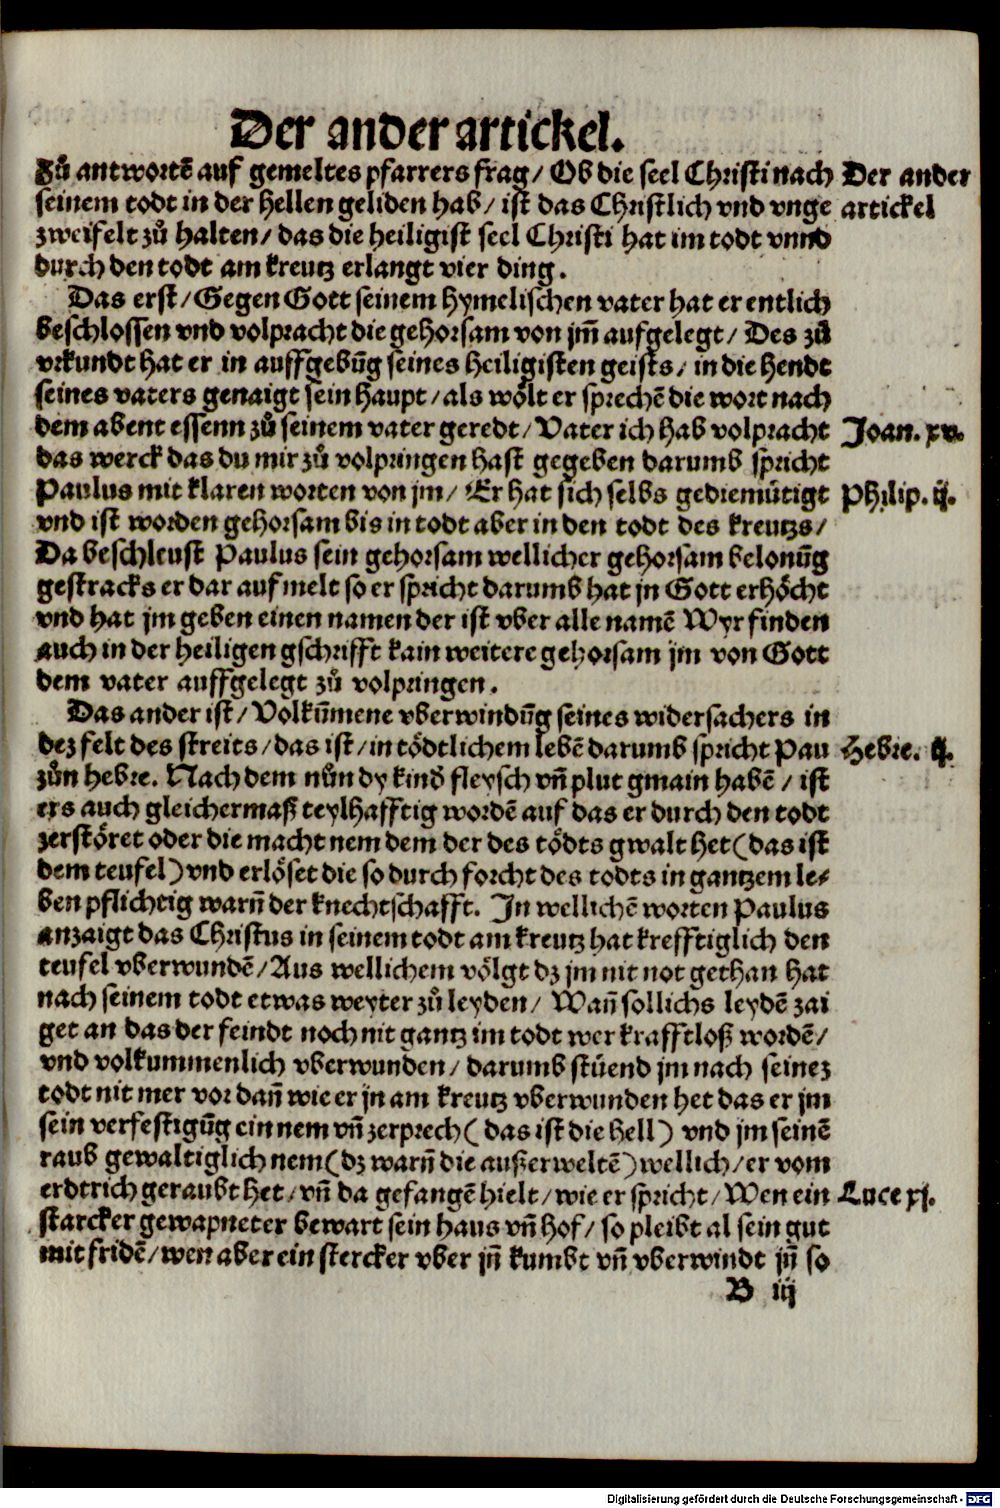 Der ander artickel.
Zů antwortē auf gemeltes pfarrers frag/ Ob die seel Christi nach
Der ander
seinem todt in der hellen geliden hab/ ist das Christlich vnd vnge
artickel
zweifelt zů halten/ das die heiligist seel Christi hat im todt vnnd
durch den todt am kreutz erlangt vier ding.
Das erst/ Gegen Gott seinem hymelischen vater hat er entlich
beschlossen vnd volpracht die gehorsam von jm̄ aufgelegt/ Des zů
vrkundt hat er in auffgebūg seines heiligisten geists/ in die hendt
seines vaters genaigt sein haupt/ als wölt er sprechē die wort nach
dem abent essenn zů seinem vater geredt/ Vater ich hab volpracht
Joan. xv.
das werck das du mir zů volpringen hast gegeben darumb spricht
Paulus mit klaren worten von jm/ Er hat sich selbs gediemütigt
Philip. ij.
vnd ist worden gehorsam bis in todt aber in den todt des kreutzs/
Da beschleust Paulus sein gehorsam wellicher gehorsam belonūg
gestracks er dar auf melt so er spricht darumb hat jn Gott erhöcht
vnd hat jm geben einen namen der ist vber alle namē Wyr finden
auch in der heiligen gschrifft kain weitere gehorsam jm von Gott
dem vater auffgelegt zů volpringen.
Das ander ist/ Volkūmene vberwindūg seines widersachers in
dez felt des streits/ das ist/ in tödtlichem lebē darumb spricht Pau
Hebre. ij.
zůn hebre. Nach dem nůn dy kind fleysch vn̄ plut gmain habē/ ist
ers auch gleichermaß teylhafftig wordē auf das er durch den todt
zerstöret oder die macht nem dem der des tödts gwalt het (das ist
dem teufel) vnd erlöset die so durch forcht des todts in gantzem le⸗
ben pflichtig warn̄ der knechtschafft. In wellichē worten Paulus
anzaigt das Christus in seinem todt am kreutz hat krefftiglich den
teufel vberwundē/ Aus wellichem völgt dz jm nit not gethan hat
nach seinem todt etwas weyter zů leyden/ Wan̄ sollichs leydē zai
get an das der feindt noch nit gantz im todt wer krafftloß wordē/
vnd volkummenlich vberwunden/ darumb stüend jm nach seinez
todt nit mer vor dan̄ wie er jn am kreutz vberwunden het das er jm
sein verfestigūg ein nem vn̄ zerprech (das ist die hell) vnd jm seinē
raub gewaltiglich nem (dz warn̄ die außerweltē) wellich/ er vom
erdtrich geraubt het/ vn̄ da gefangē hielt/ wie er spricht/ Wen ein
Luce xj.
starcker gewapneter bewart sein haus vn̄ hof/ so pleibt al sein gut
mit fridē/ wen aber ein stercker vber jn̄ kumbt vn̄ vberwindt jn̄ so
B iij
Digitalisierung gefördert durch die Deutsche Forschungsgemeinschaft - DFG